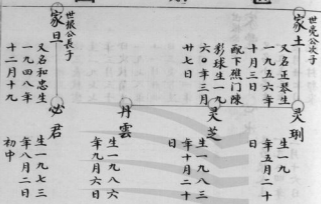 世亮公次子
家土
又名正琴生
一九五六年
十月三日
配下照门陳
彩球生一九
六〇年三月
廿七日
灵琍
生一九
年五月二十
日
灵芝
生一九八三
年十月二十
日
丹雲
生一九八六
年九月六日
世銀公長子
家旦
又名和忠生
一九四八年
十二月十九
必君
生一九七三
年八月二日
初中